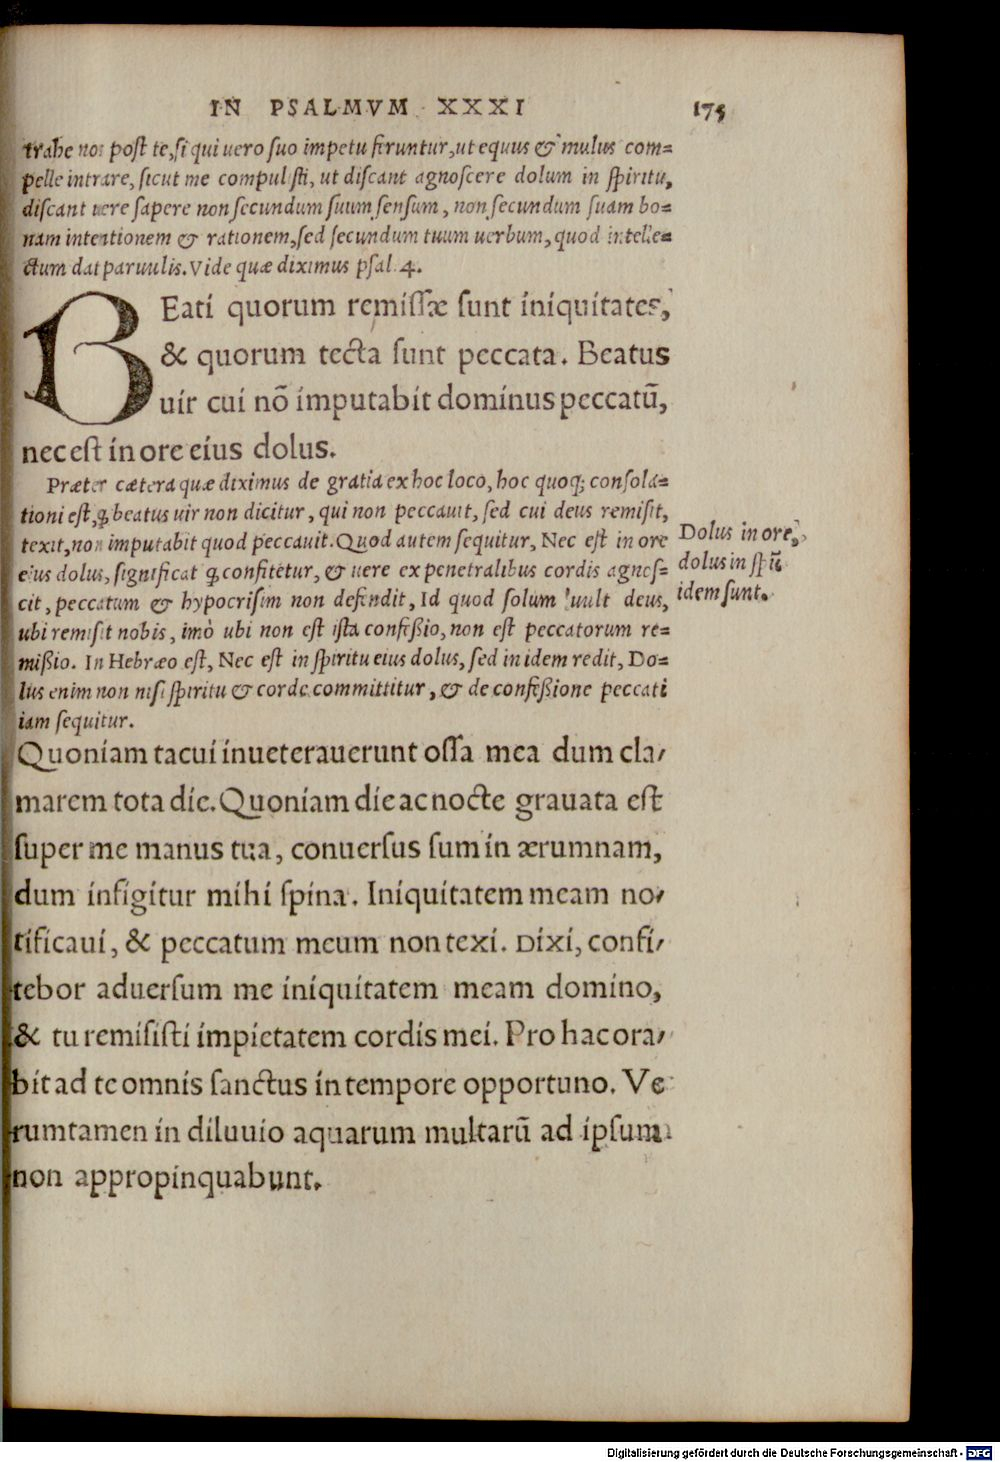 IN PSALMVM XXXI 175
trahe nos post te, si qui uero suo impetu feruntur, ut equus & mulus com=
pelle intrare, sicut me compulisti, ut discant agnoscere dolum in spiritu,
discant uere sapere non secundum suum sensum, non secundum suam bo=
nam intentionem & rationem, sed secundum tuum uerbum, quod intelle=
ctum dat paruulis. Vide quæ diximus psal. 4.
BEati quorum remissæ sunt iniquitates,
& quorum tecta sunt peccata. Beatus
uir cui nō imputabit dominus peccatū,
nec est in ore eius dolus.
Præter cætera quæ diximus de gratia ex hoc loco, hoc quoq; consola=
tioni est, ꝙ beatus uir non dicitur, qui non peccauit, sed cui deus remisit,
texit, non imputabit quod peccauit. Quod autem sequitur, Nec est in ore
eius dolus, significat ꝙ confitetur, & uere ex penetralibus cordis agnos=
cit, peccatum & hypocrisim non defendit, Id quod solum uult deus,
ubi remisit nobis, imò ubi non est ista confeßio, non est peccatorum re=
mißio. In Hebræo est, Nec est in spiritu eius dolus, sed in idem redit, Do=
lus enim non nisi spiritu & corde committitur, & de confeßione peccati
iam sequitur.
Dolus in ore,
dolus in spū
idem sunt.
Quoniam tacui inueterauerunt ossa mea dum cla/
marem tota die. Quoniam die ac nocte grauata est
super me manus tua, conuersus sum in ærumnam,
dum infigitur mihi spina. Iniquitatem meam no/
tificaui, & peccatum meum non texi. Dixi, confi/
tebor aduersum me iniquitatem meam domino,
& tu remisisti impietatem cordis mei. Pro hac ora/
bit ad te omnis sanctus in tempore opportuno. Ve
rumtamen in diluuio aquarum multarū ad ipsum
non appropinquabunt.
Digitalisierung gefördert durch die Deutsche Forschungsgemeinschaft - DFG